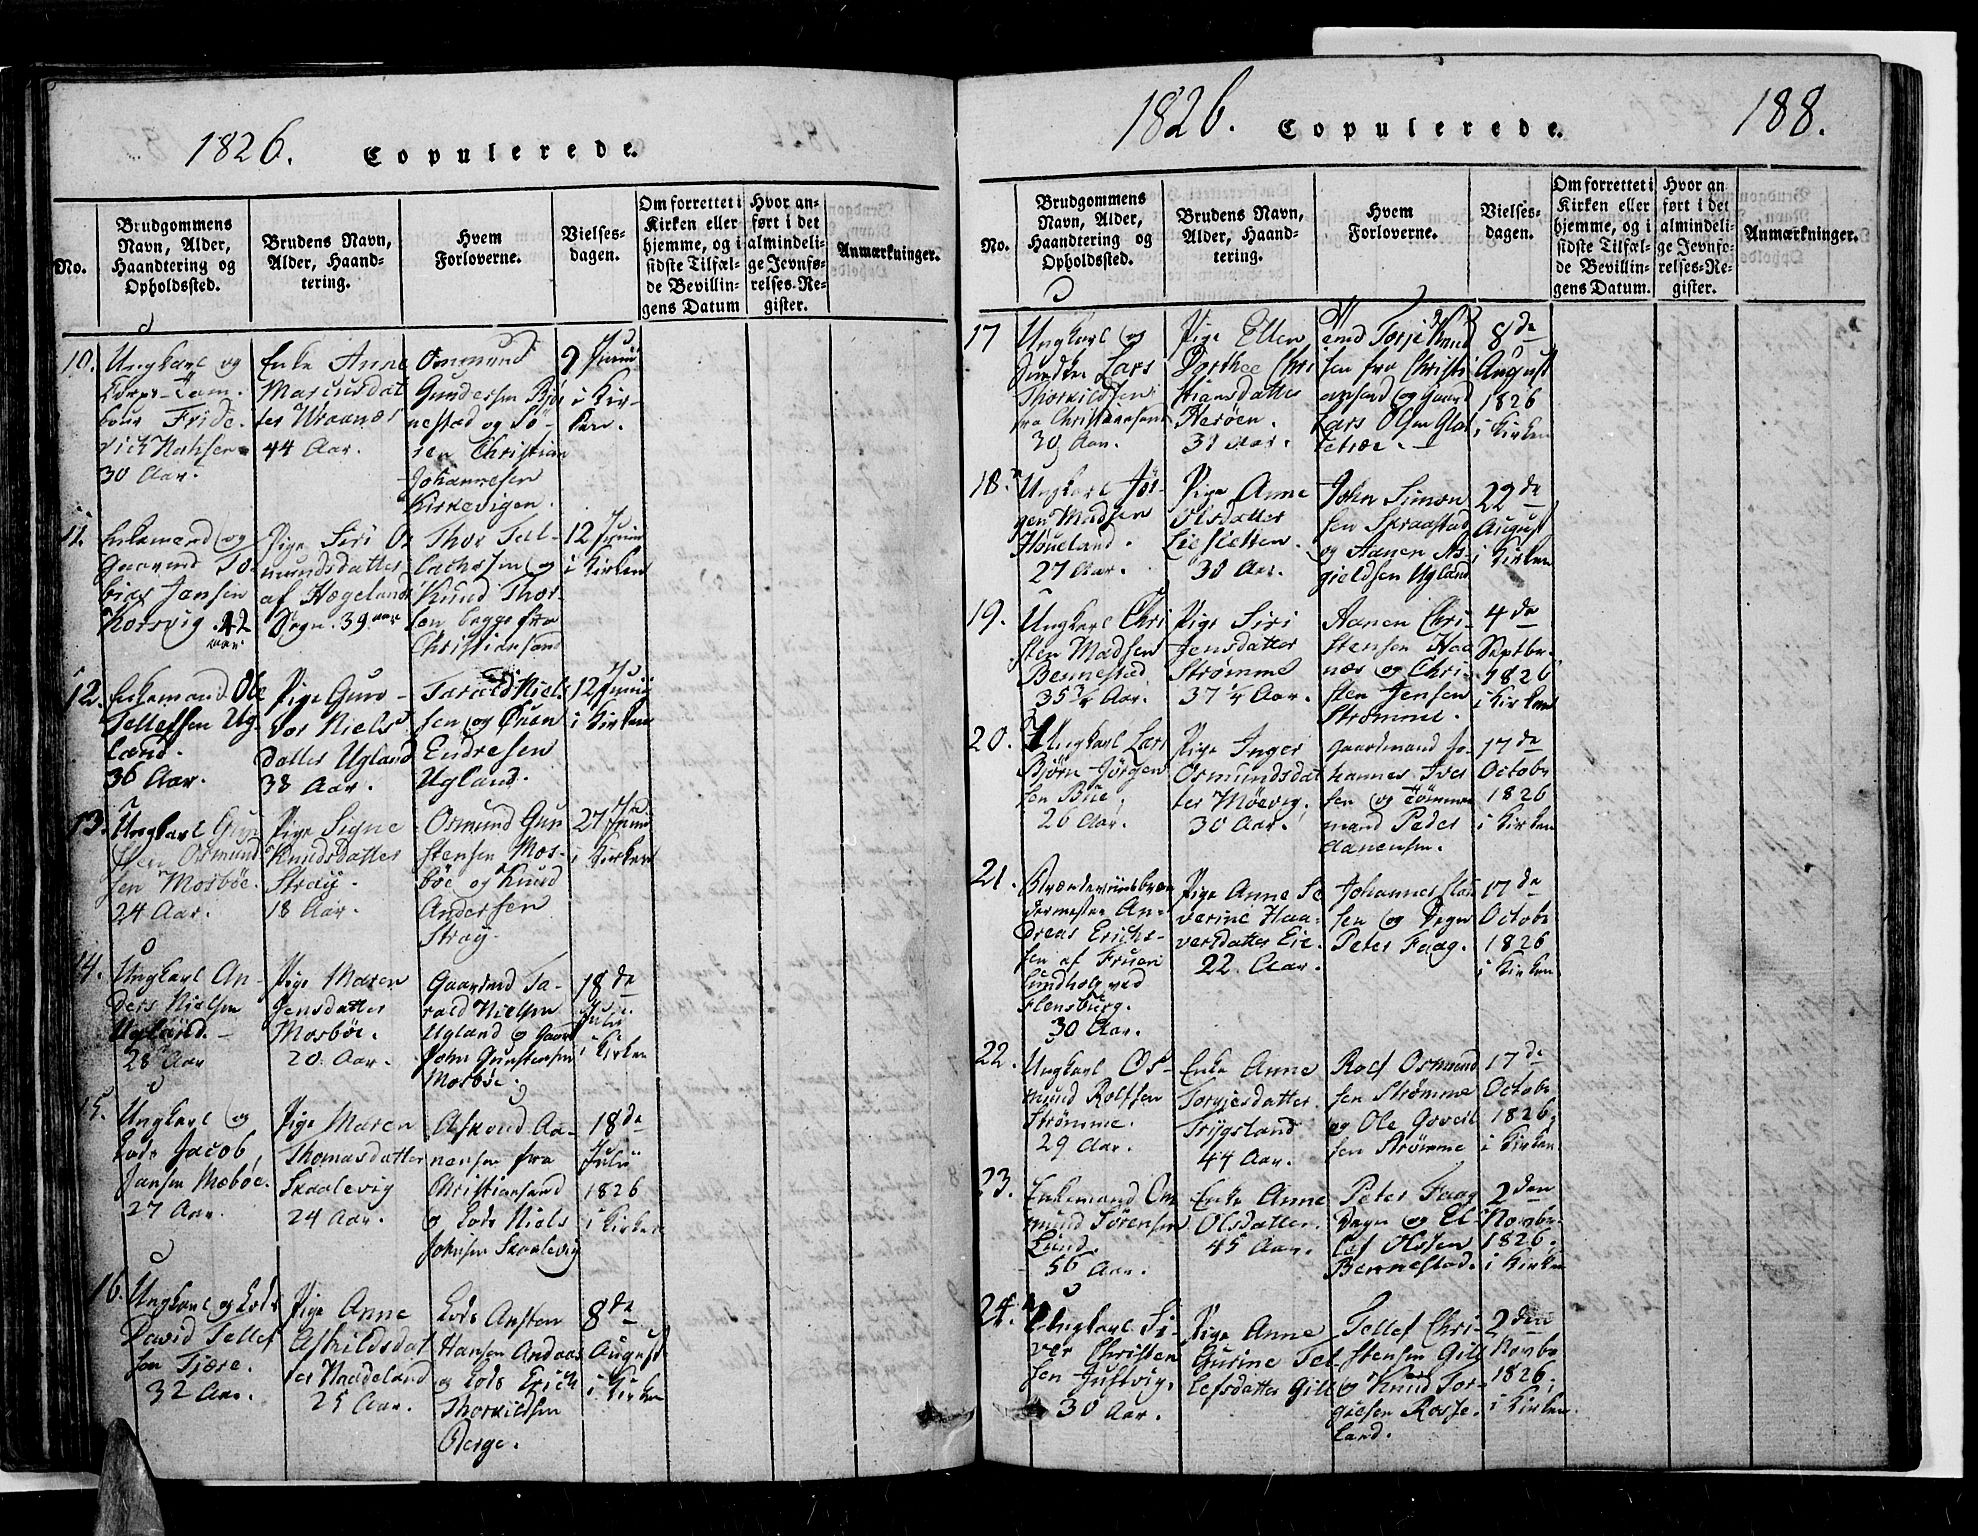 1826. Copulerede.
No.
Brudgommens
Navn, Alder,
Haandtering og
Opholdssted.
Brudens Navn,
Alder, Haand-
tering.
Hvem
Forloverne.
Vielses-
dagen.
Om forrettet i
Kirken eller
hjemme, og i
sidste Tilfæl-
de Bevillin-
gens Datum
Hvor an-
ført i det
almindeli-
ge Jevnfø-
relses-Re-
gister.
Anmærkninger.
10.
Ungkarl og
Corps-Tam-
bour Fride-
rich
30 Aar.
Enke Anne
Marcusdat
ter Uraanæs
44 Aar.
Omund
Gundersen Bjø
nestad og Sö-
ren Christian
Johannesen
Kirkevigen.
9 Juni
i Kir-
ken.
11.
Enkemand og
Gaarmd To-
bias Jansen
Korsvig. 42
aar.
Pige Siri O
mundsdatter
af Hægelands
Sogn. 39 aar
Thor Tell-
achsen og
Knud Thor-
sen begge fra
Christiansand
12 Juni
i Kirken
12.
Enkemand Ole
Tellefsen Ug-
land.
36 Aar.
Pige Gun-
vor Niels
datter Ugland
38 Aar.
Tarald Niel-
sen og
Endresen
Ugland.
12 Juni
i Kirken
13.
Ungkarl Gun
sten Osmund
sen Mosbøe.
24 Aar.
Pige Signe
Knudsdatter
Straij.
18 Aar.
Osmund Gun
stensen Mos-
bøe og Knud
Andersen
Straij.
27 Juni
i Kirken
14.
Ungkarl An-
ders Nielsen
Ugland.-
28 Aar
Pige Maren
Jensdatter
Mosbøe.
20 Aar.
Gaarmd Ta-
rald Nielsen
Ugland og Gaard
John Gunstensen
Mosbøe.
18 de
Julii
i Kirken
15.
Ungkarl og
Lods Jacob
Jansen Mæbøe.
27 Aar.
Pige Maren
Thomasdatter
Skaalevig
24 Aar.
Asknud Aa-
nensen fra
Christiansand
og Lods Niels
Johnsen Skaalevig
18 de
Julii
1826
i Kirken
16.
Ungkarl og Lods
David Tellef
sen Tjære.
32 Aar.
Pige Anne
Askildsdat
ter
25 Aar.
Lods Ansten
Hansen Andaas
og Lods Erich
Thorkildsen
Berge.
8 de
August
i Kirken
1826. Copulerede. 188.
No.
Brudgommens
Navn, Alder,
Haandtering og
Opholdssted.
Brudens Navn,
Alder, Haand-
tering.
Hvem
Forloverne.
Vielses-
dagen.
Om forrettet i
Kirken eller
hjemme, og i
sidste Tilfæl-
de Bevillin-
gens Datum.
Hvor an
ført i det
almindeli-
ge Jevnfø-
relses-Re-
gister.
Anmærkninger.
17
Ungkarl og
Lars
Thorkildsen
fra Christiansand
30 Aar.
Pige Ellen
Dorthee Chri
stiansdatter
Herøen
30 Aar.
Torje Knud
sen fra Christi
ansand og Gaard
Lars Olsen Glat
tetræe.
8 de
August
1826
i Kirken
18.
Ungkarl Jör-
gen Madsen
Høueland.
27 Aar.
Pige Anne
Olsdatter
Liesletten.
30 Aar.
John Simon
sen Skraastad
og Aanen As-
gieldsen Ugland
22 de
August
i Kirken
19.
Ungkarl Chri
sten Madsen
Bennestad
35 1/4 Aar.
Pige Siri
Jensdatter
Strømme
37 1/4 Aar.
Aanen Chri-
stensen Haa
nær og Chri-
sten Jensen
Strømme.
4 de
Septbr.
1826
i Kirken
20.
Ungkarl Lars
Bjørn Jörgen
sen Bue.
26 Aar.
Pige Inger
Osmundsdat
ter Møevig.
30 Aar.
Gaardmand Jo-
hannes Iver
sen og Tömmer
mand Peder
Aanensen.
17 de
Octobr
1826
i Kirken
21.
An-
dreas Erich-
sen af Fruen
lundholz ved
Flensburg.
30 Aar.
Pige Anne Se
verine Haa-
versdatter Eie.
22 Aar.
Johannes
sen og Degn
Peter Faag.
17 de
Octobr
1826
i Kirken
22.
Ungkarl Os-
mund Rolfsen
Strømme.
29 Aar.
Enke Anne
Torjesdatter
Trijgsland
44 Aar.
Rolf Osmund
sen Strømme
og Ole
sen Strømme
17 de
Octobr
1826.
i Kirken
23.
Enkemand Om
mund Sörensen
Lund.
56 Aar.
Enke Anne
Olsdatter.
45 Aar.
Peter Faag
Degn og El-
lef Olsen
Bennestad.
2 den
Novbr.
1826.
i Kirken
24.
Ungkarl Si-
ver Christen
sen Justvig.
30 Aar.
Pige Anne
Gurine Tel-
lefsdatter Gill
Tellef Chri-
stensen Gill
og Knud Tor-
giesen Rosse-
land.
2 den
Novbr
1826.
i Kirken.